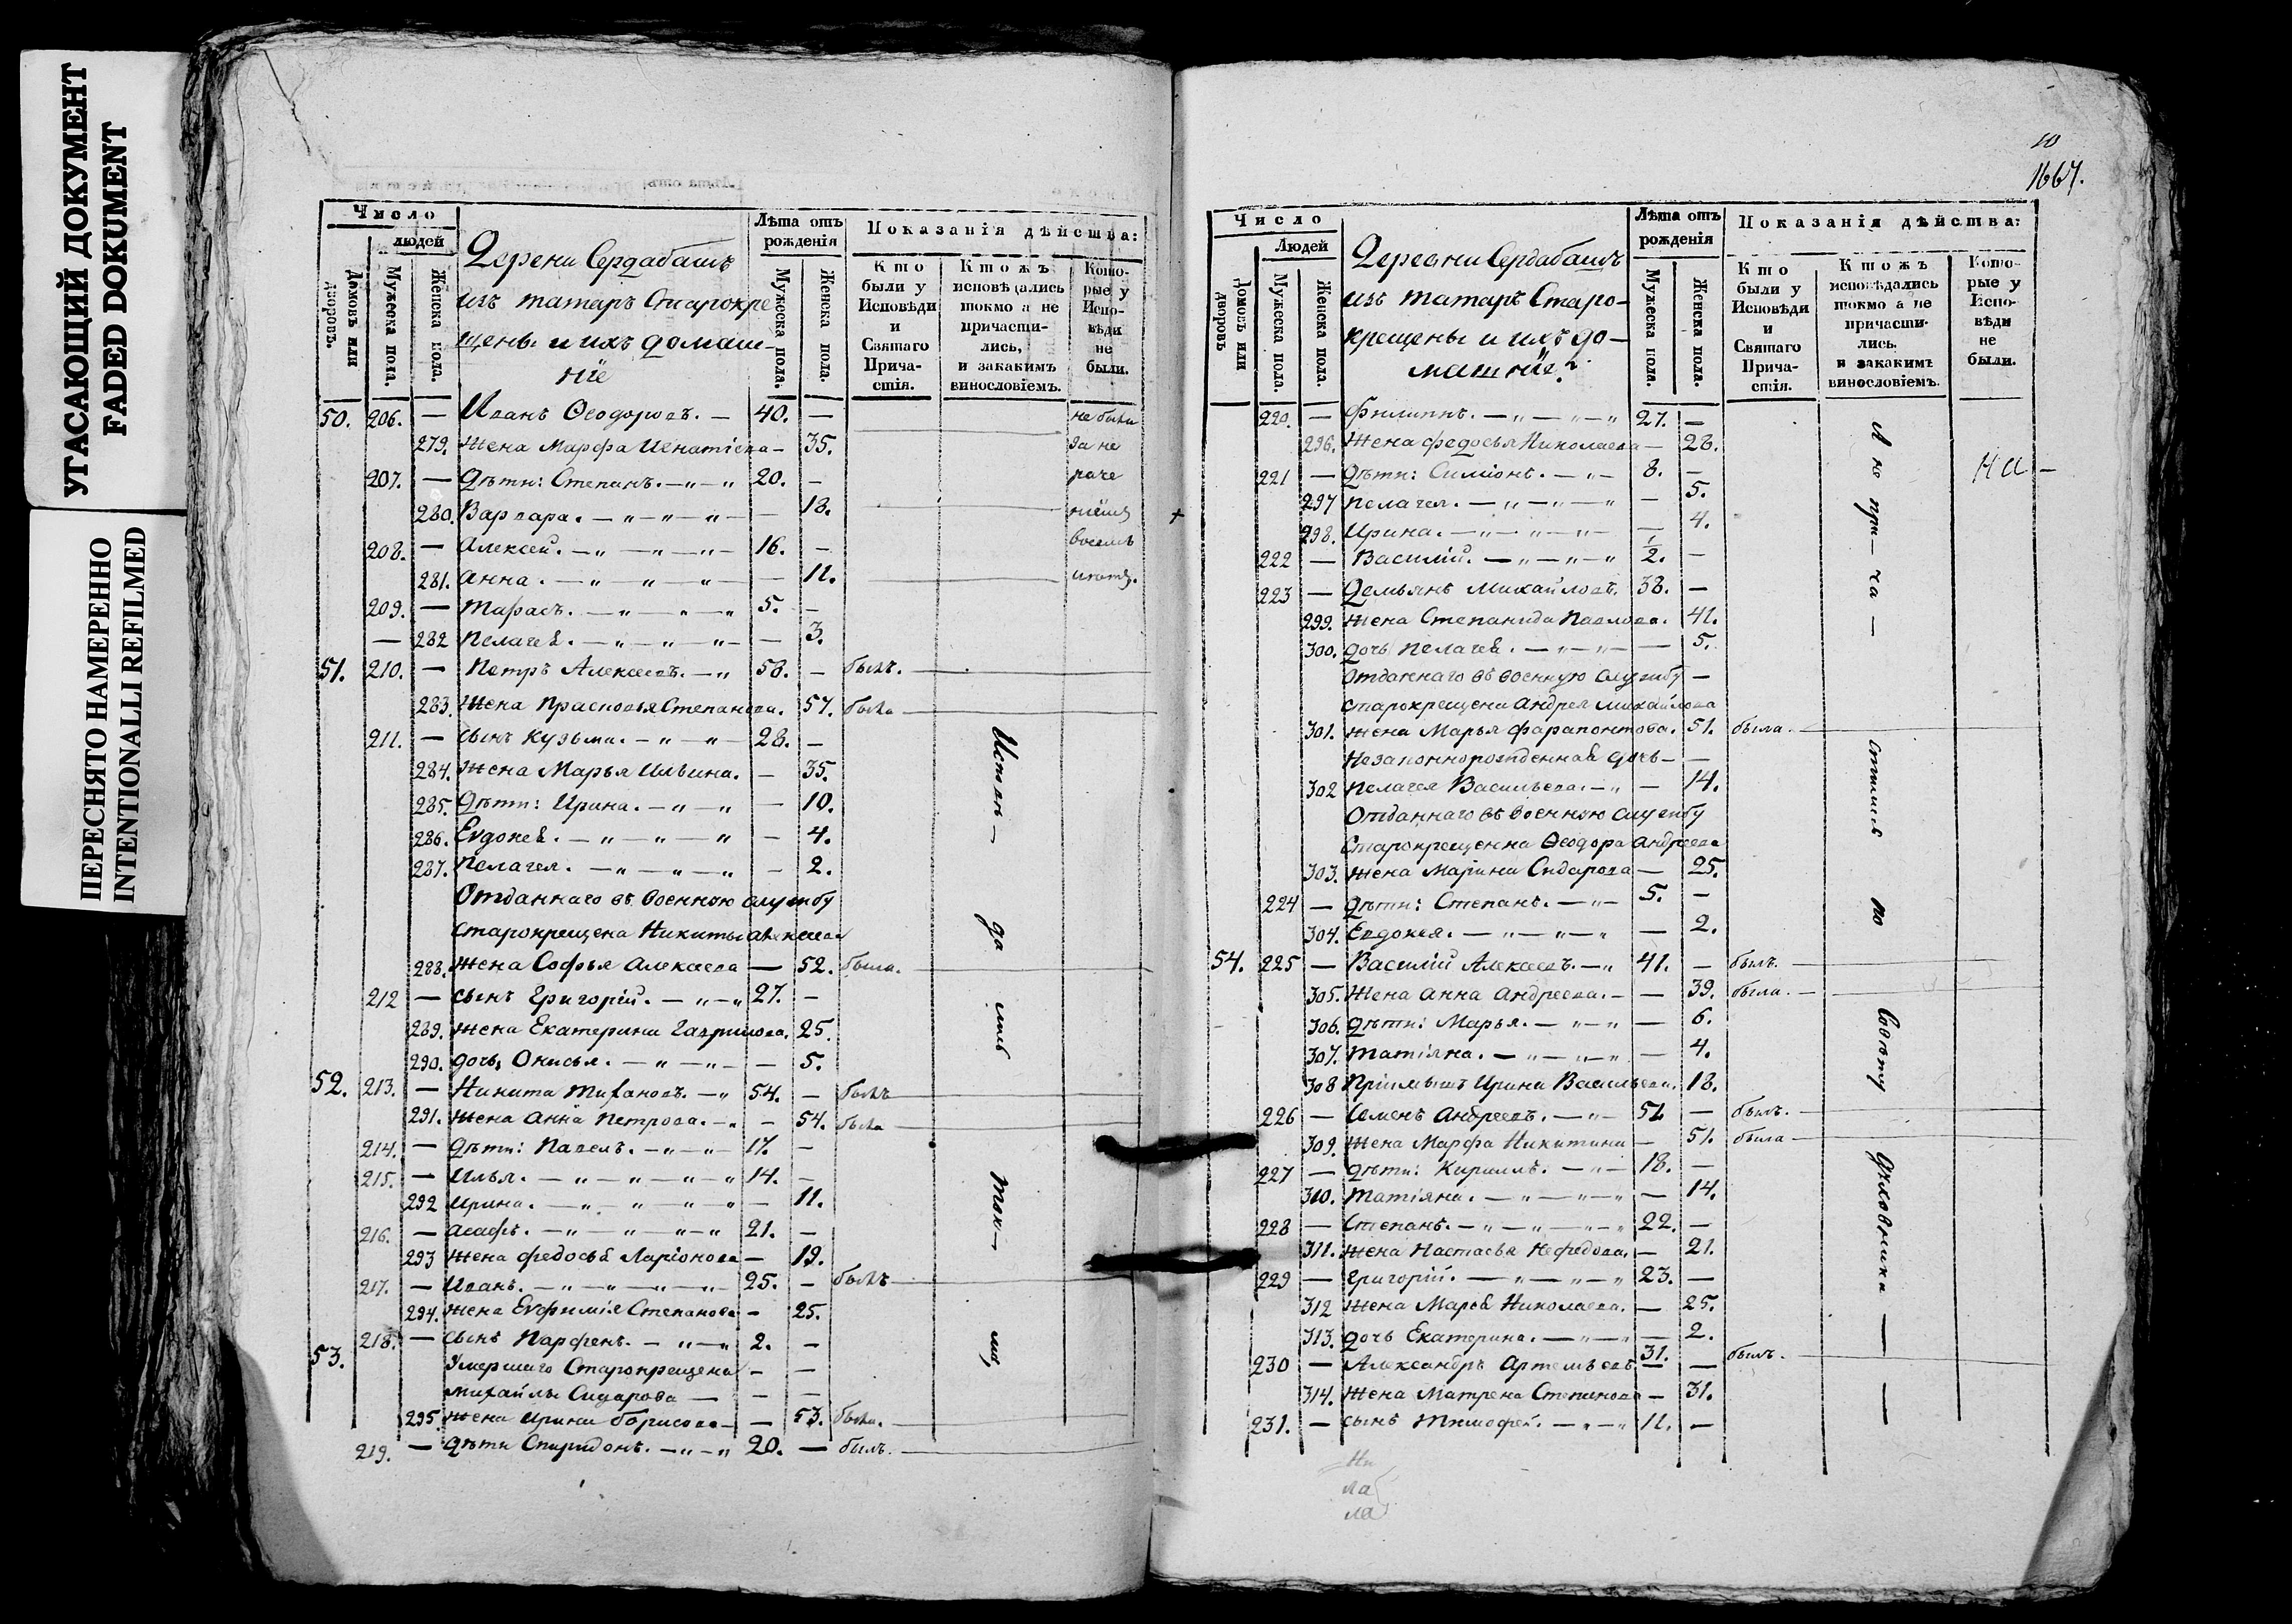 УТАСАЮЩИЙ ДОКУМЕНТ
FADED DOKUMENT
ПЕРЕСНЯТО НАМЕРЕННО
INTENTIONALLI REFILMED
Число
людей
Домовъ или дворовъ.
Мужеска пола.
Женска пола.
Дерени Сердабашъ
изъ татаръ Старокре
щены и ихъ домаш-
нiе
Лѣта отъ рожденiя
Мужеска пола.
Женска пола.
Показанiя дѣйства:
Кто были у Исповѣди и Святаго Прича- стiя.
Ктожъ исповѣдались токмо а не причасти- лись, и закакимъ винословiемъ.
Кото- рые у Испо- вѣди не были.
50. 206. — Иванъ Ѳеодоровъ. — 40. — не были
279. Жена Марфа Игнатiева — 35. за не
207. — дѣти: Степанъ. — „ — „ 20. — раче
280. Варвара. — „ — „ — „ — — 18.
208. — Алексей. — „ — „ — „ — 16. —
281. Анна. — „ — „ — „ — — 11.
209. — Тарасъ. — „ — „ — „ 5. —
— 282 Пелагея. — „ — „ — „ — — 3.
51. 210. — Петръ Алексеевъ. — „ 58. — былъ.
283. Жена Прасковья Степанова. 57. была
211. — сынъ Кузьма. — „ — „ — 28. —
284. Жена Марья Ильина. — 35.
285. дѣти: Ирина. — „ — „ — 10.
286. Евдокея. — „ — „ — „ — 4.
287. Пелагея. — „ — „ — „ — 2.
Отданнаго въ военную службу
старокрещена Никиты Алексеева
288. жена Софья Алексеева — 52. была.
212 — сынъ Григорiй. — „ — „ 27. —
289. жена Екатерина Гаврилова. 25.
290. дочь Онисья. — „ — „ — — 5.
52. 213. — Никита Тихановъ. — „ 54. — былъ
291. жена Анна Петрова. — „ — 54. была
214. — дѣти: Павелъ. — „ — „ — 17. —
215. — Илья. — „ — „ — „ — „ 14. —
292 Ирина. — „ — „ — „ — „ — 11.
216. — Асафъ. — „ — „ — „ — „ 21. —
293 жена Федосья Ларiонова — 19.
217. — Иванъ. — „ — „ — „ — „ — 25. — былъ
294. жена Евфимiя Степанова — 25.
218. — сынъ Парфенъ. — „ — „ 2. —
53. Умершаго Старокрещена — —
Михайлы Сидарова — — —
295. жена Ирина Борисова — — 53. была.
219. — дѣти Спиридонъ. — „ — „ 20. — былъ.
Исповѣ — да лись ток — мо,
10
1667.
Число
Людей
Домовъ или дворовъ
Мужеска пола.
Женска пола.
Деревни Сердабашъ
изъ татаръ Старо-
крещены и ихъ до-
машнiе
Лѣта отъ рожденiя
Мужеска пола.
Женска пола.
Показанiя дѣйства:
Кто были у Исповѣди и Святаго Прича- стiя.
Ктожъ исповѣдались токмо а не причасти- лись. и закакимъ винословiемъ.
Кото- рые у Испо- вѣди не были.
220. — Филиппъ. — „ — „ — „ 27. —
296. жена Федосья Николаева — 28.
221 — дѣти: Симiонъ. — „ — 8. —
297 Пелагея. — „ — „ — „ — 5.
298. Ирина. — „ — „ — „ — — 4.
222 — Василiй. — „ — „ — „ 1/2. —
223 — Демьянъ Михайловъ. 38. —
299. жена Степанида Павлова. 41.
300. дочь Пелагея. — „ — „ — — 5.
Отданнаго въ военную службу —
старокрещена Андрея Михайлова
301. жена Марья Фарапонтова. 51. была.
Незаконнорожденная дочь — —
302 Пелагея Васильева. — „ — 14.
Отданнаго въ военную службу
Старокрещенна Ѳеодора Андреева
303. жена Марина Сидарова — 25.
224 — дѣти: Степанъ. — „ — 5. —
304. Евдокея. — „ — „ — „ — 2.
54. 225 — Василiй Алексеевъ. — „ 41. — былъ.
305. жена Анна Андреева. — — 39. была.
306. дѣти: Марья. — „ — „ — 6.
307. Татiяна. — „ — „ — „ — 4.
308 Прiимышъ Ирина Васильева. 18.
226 — Семенъ Андреевъ. — „ — 51 — былъ.
309. жена Марфа Никитина — 51. была
227 — дѣти: Кириллъ. — „ — 18. —
310. Татiяна. — „ — „ — „ — 14.
228 — Степанъ. — „ — „ — „ — „ 22. —
311. жена Настасья Нефедова. — 21.
229 — Григорiй. — „ — „ — „ 23. —
312 жена Марья Николаева. — 25.
313. дочь Екатерина. — „ — „ — 2.
230 — Александръ Артемьевъ 31. — былъ.
314. жена Матрена Степанова — 31.
231. — сынъ Тимофей. — „ — „ 11. —
А не при — ча — стились по Совѣту духовника